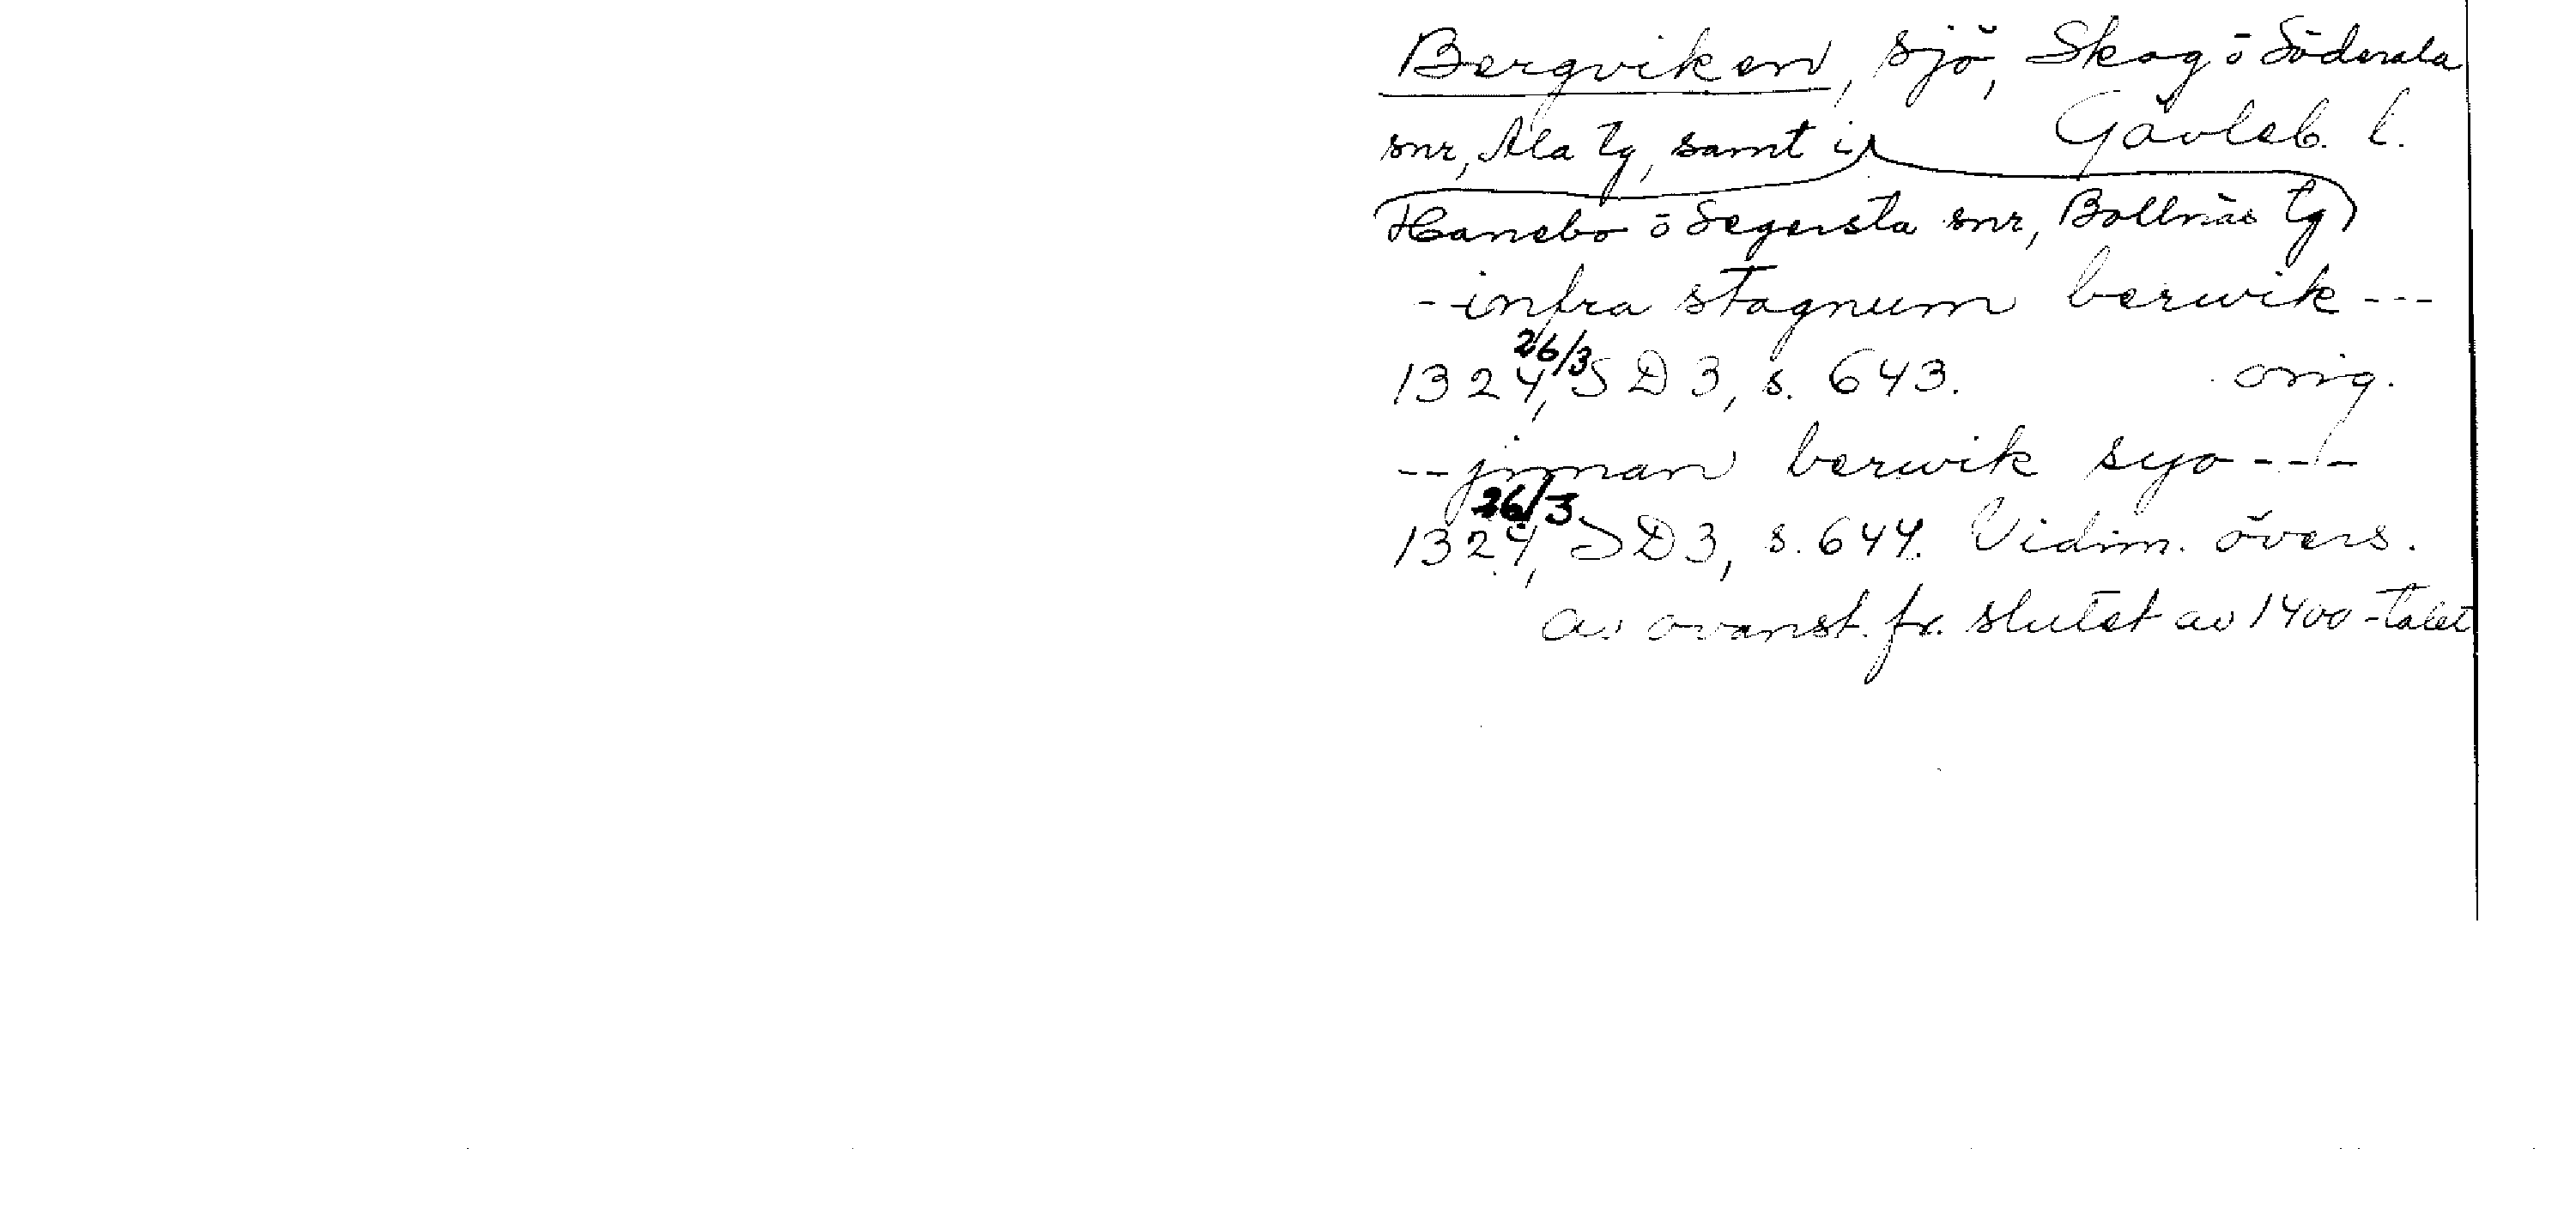 Bergviken, sjö, Skog o Söderala
snr, Ala tg, samt i Gävleb. l.
Hanebo o Segersta snr, Bollnäs tg
- infra stagnum berwik ---
1324 26/3, SD 3, s. 643. orig.
-- jnnan berwik syo ---
1324 26/3, SD 3, s. 644. Vidim. övers.
av ovanst. fr. slutet av 1400-talet